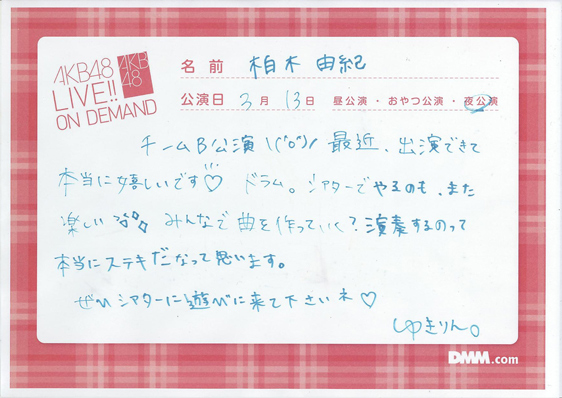 AKB48
LIVE!!
ON DEMAND
AKB
48
名前 柏木 由紀
公演日 3月 13日 昼公演・おやつ公演・夜公演
チームB公演 \(^o^)/ 最近、出演できて
本当に嬉しいです♡ ドラム。シアターでやるのも、また
楽しい みんなで曲を作っていく?演奏するのって
本当にステキだなって思います。
ぜひシアターに遊びに来て下さいネ♡
ゆきりん。
DMM.com